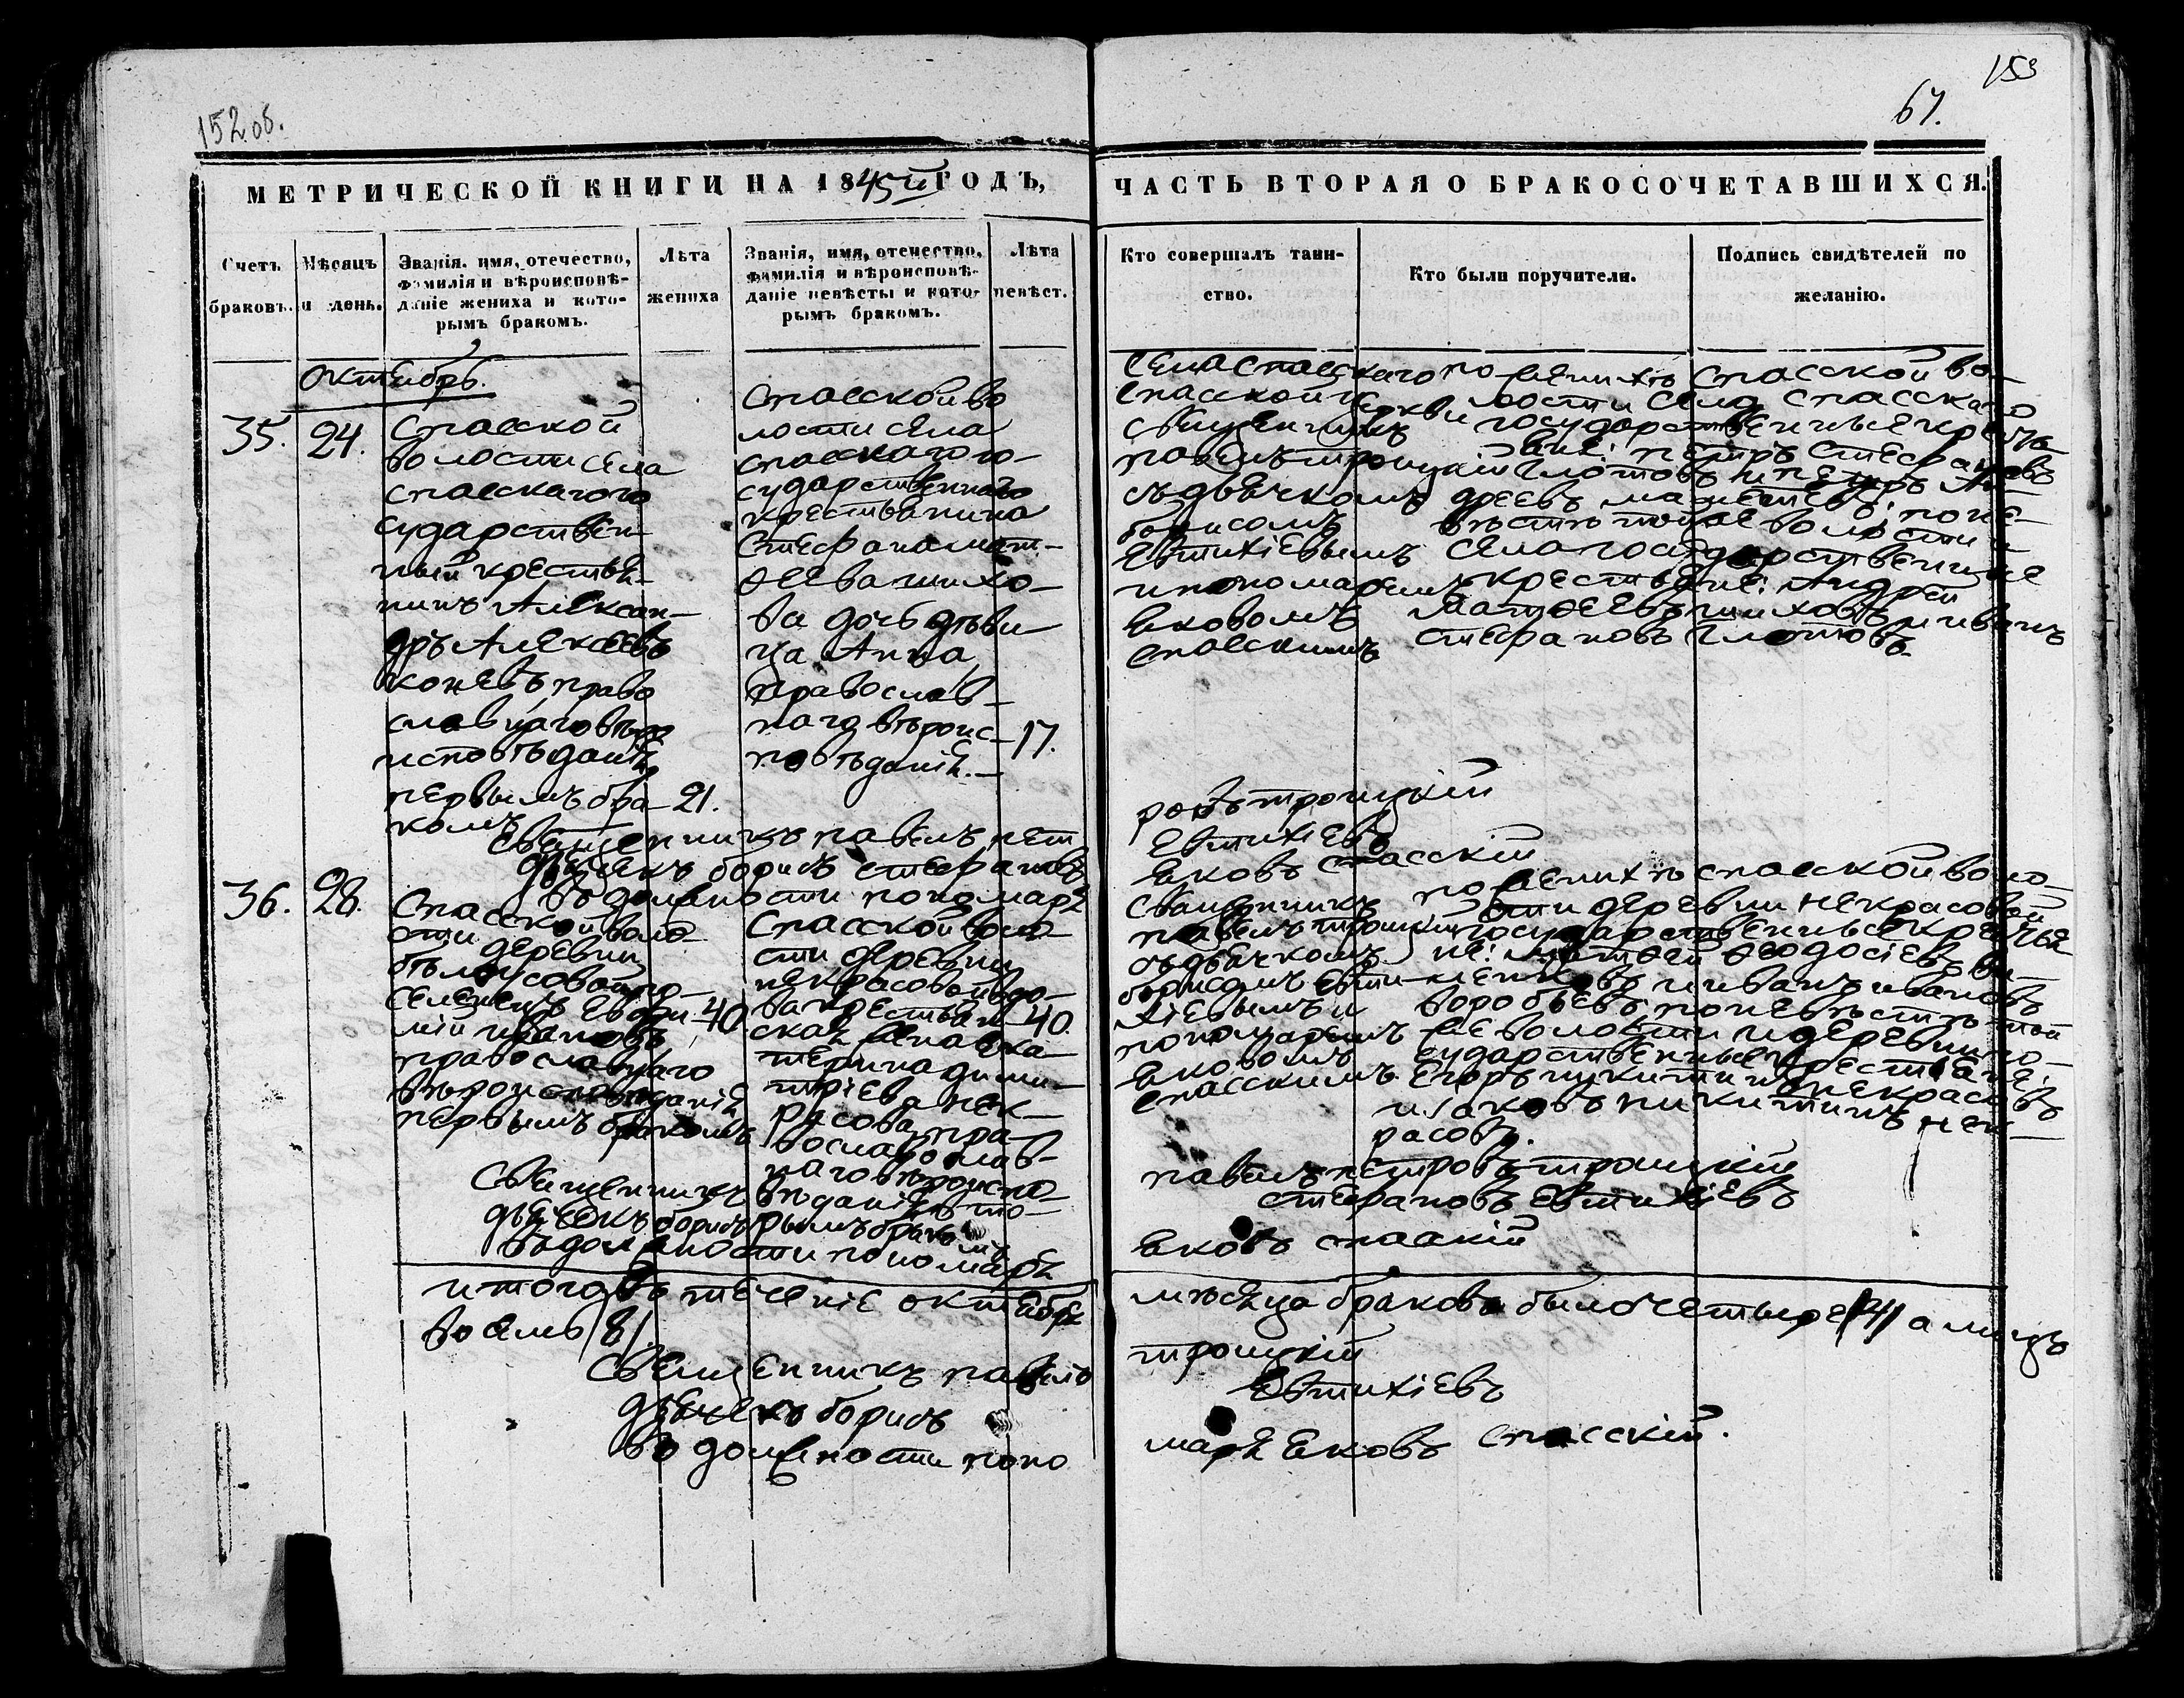 152 об.
153
67.
МЕТРИЧЕСКОЙ КНИГИ НА 1845й ГОДЪ,
ЧАСТЬ ВТОРАЯ О БРАКОСОЧЕТАВШИХСЯ.
Счетъ браковъ.
Мѣсяцъ и день.
Званія. имя, отечество,
фамилія и вѣроисповѣ-
даніе жениха и кото-
рымъ бракомъ.
Лѣта
жениха
Званія, имя, отечество,
фамилія и вѣроисповѣ-
даніе невѣсты и кото-
рымъ бракомъ.
Лѣта
невѣст.
Кто совершалъ таин-
ство.
Кто были поручители.
Подпись свидѣтелей по
желанію.
октябрь.
35.
24.
Спасской
волости села
спаскаго го
сударствен-
ный крестья-
нинъ Алексан-
дръ Алексеевъ
коневъ, право
славнаго вѣро
исповѣданія
первымъ бра-
комъ
21.
Спасской во
лости села
спасскаго го-
сударственнаго
крестьянина
Стефана мат-
ѳеева шихо-
ва дочь дѣви
ца Анна
православ-
наго вѣроис-
повѣданія.
17.
Села спасскаго
спасской церкви
священникъ
павелъ троицкій
съ дьячкомъ
борисомъ
Евтихіевымъ
и пономаремъ
яковомъ
спасскимъ
по женихѣ спасской во-
лости села спасскаго
государственные крестья
ане: петръ Стефановъ
глотовъ и петръ Ан-
дреевъ по не-
вѣстѣ тойже волости и
села государственные
крестьяне: Андрей
матѳеевъ шиховъ и иванъ
стефановъ глотовъ.
Священникъ павелъ пет
ровъ троицкій
дьячекъ борисъ стефановъ
Евтихіевъ
въ должности пономаря
яковъ спасскій
36.
28.
Спасской воло-
сти деревни
бѣлоусовой по-
селенецъ Евфи-
мій ивановъ
православнаго
вѣроисповѣданія
первымъ бракомъ
40
Спасской воло-
сти деревни
некрасовой вдо-
ва крестьян-
ская жена ека-
терина дими-
тріева нек-
расова, пра-
вославо слав-
наго вѣроиспо-
вѣданія вто-
рымъ брако
мъ
40.
Священникъ
павелъ троицкій
съ дьячкомъ
борисомъ Евти-
хіевымъ и
пономаремъ
яковомъ
спасскимъ.
по женихѣ спасской воло-
сти деревни некрасовой
государственные крестья
не: матѳей ѳеодосіевъ
и иванъ ивановъ
воробьевъ; по невѣстѣ той
же волости и деревни го-
сударственные крестьяне:
Егоръ никитинъ некрасовъ
и іаковъ никитинъ нек-
расовъ.
Священникъ
павелъ петровъ троицкій
дьячекъ борисъ
стефановъ Евтихіевъ
въ должности пономаря
яковъ спаскій
итого въ теченіе октября
мѣсяца браковъ было четыре /4/ а лицъ
восемь /8/
Священникъ павелъ
троицкій
дьячекъ борисъ
Евтихіевъ
въ должности поно
маря яковъ спасскій.